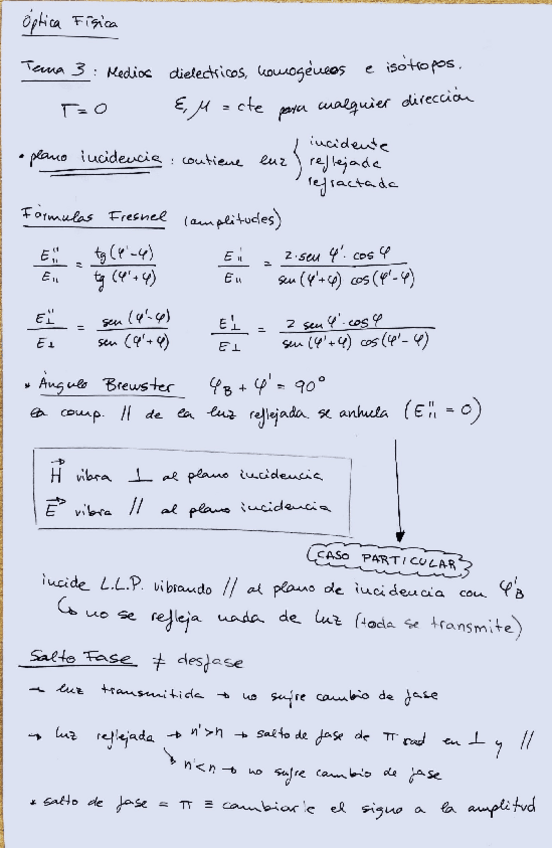 Óptica Física
Tema 3 : Medios dielectricos, homogéneos e isótropos.
Γ = 0    ε, μ = cte para cualquier dirección
• plano incidencia : contiene luz { incidente
reflejada
refractada
Fórmulas Fresnel (amplitudes)
E''∥ / E∥ = tg (φ'-φ) / tg (φ'+φ)    E'∥ / E∥ = 2·sen φ'·cos φ / sen (φ'+φ) cos(φ'-φ)
E''⊥ / E⊥ = sen (φ'-φ) / sen (φ'+φ)    E'⊥ / E⊥ = 2 sen φ'·cos φ / sen (φ'+φ) cos(φ'-φ)
* Ángulo Brewster    φB + φ' = 90°
la comp. // de la luz reflejada se anhula (E''∥ = 0)
H⃗ vibra ⊥ al plano incidencia
E⃗ vibra // al plano incidencia
CASO PARTICULAR
incide L.L.P. vibrando // al plano de incidencia con φ'B
↳ no se refleja nada de luz (toda se transmite)
Salto Fase ≠ desfase
→ luz transmitida → no sufre cambio de fase
→ luz reflejada → n'>n → salto de fase de π rad en ⊥ y //
↘ n'<n → no sufre cambio de fase
* salto de fase = π ≡ cambiarle el signo a la amplitud